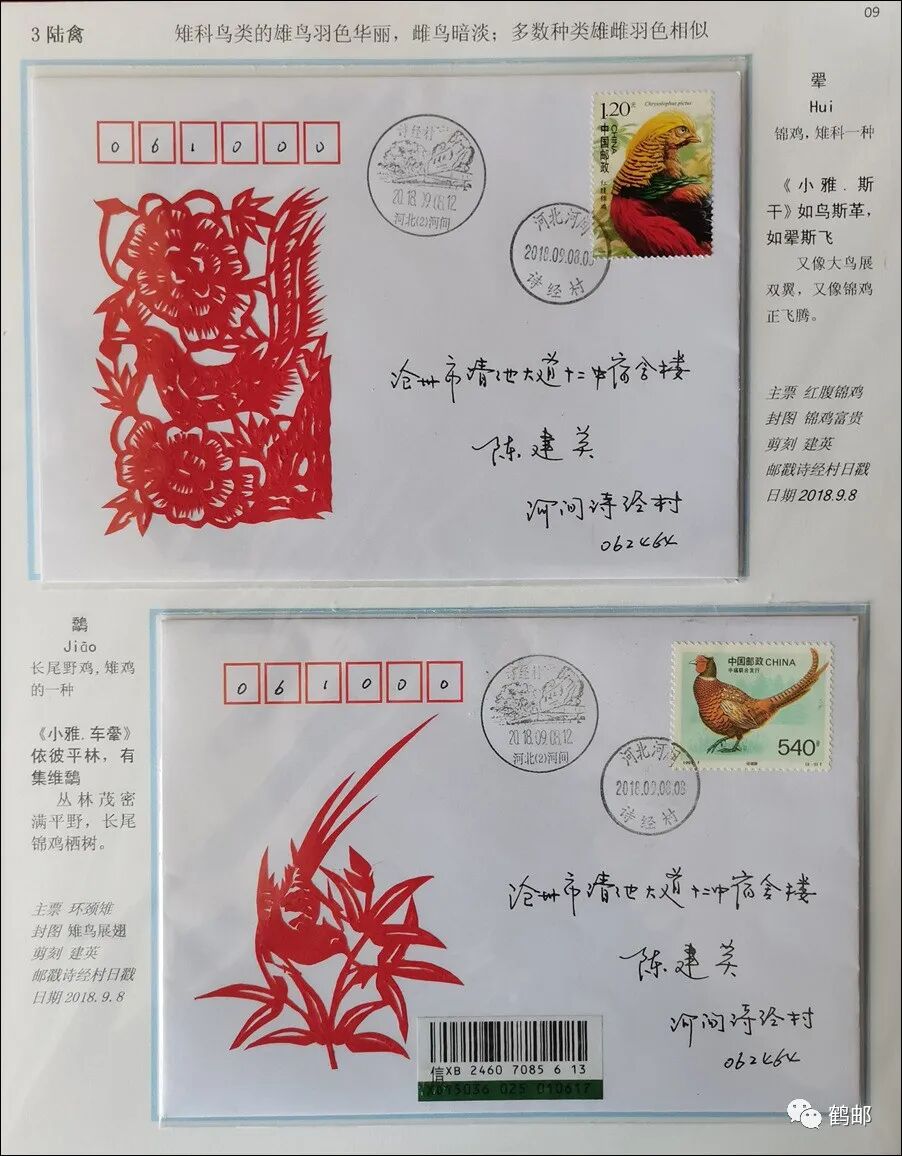 09
3 陆禽 雉科鸟类的雄鸟羽色华丽，雌鸟暗淡；多数种类雄雌羽色相似
翚
Hui
锦鸡，雉科一种
《小雅．斯
干》如鸟斯革，
如翚斯飞
又像大鸟展
双翼，又像锦鸡
正飞腾。
主票 红腹锦鸡
封图 锦鸡富贵
剪刻 建英
邮戳诗经村日戳
日期 2018.9.8
061000
诗经村
2018.09.08.12
河北(2)河间
河北河间
2018.09.08.08
诗经村
1.20元
Chrysolophus pictus
中国邮政
CHINA
红腹锦鸡
沧州市清池大道十二中宿舍楼
陈建英
河间诗经村
062464
鷮
Jiāo
长尾野鸡，雉鸡
的一种
《小雅.车舝》
依彼平林，有
集维鷮
丛林茂密
满平野，长尾
锦鸡栖树。
主票 环颈雉
封图 雉鸟展翅
剪刻 建英
邮戳诗经村日戳
日期 2018.9.8
061000
诗经村
2018.09.08.12
河北(2)河间
河北河间
2018.09.08.08
诗经村
中国邮政 CHINA
中瑞联合发行
540分
沧州市清池大道十二中宿舍楼
陈建英
河间诗经村
062464
信XB 2460 7085 6 13
025 010617
鹤邮